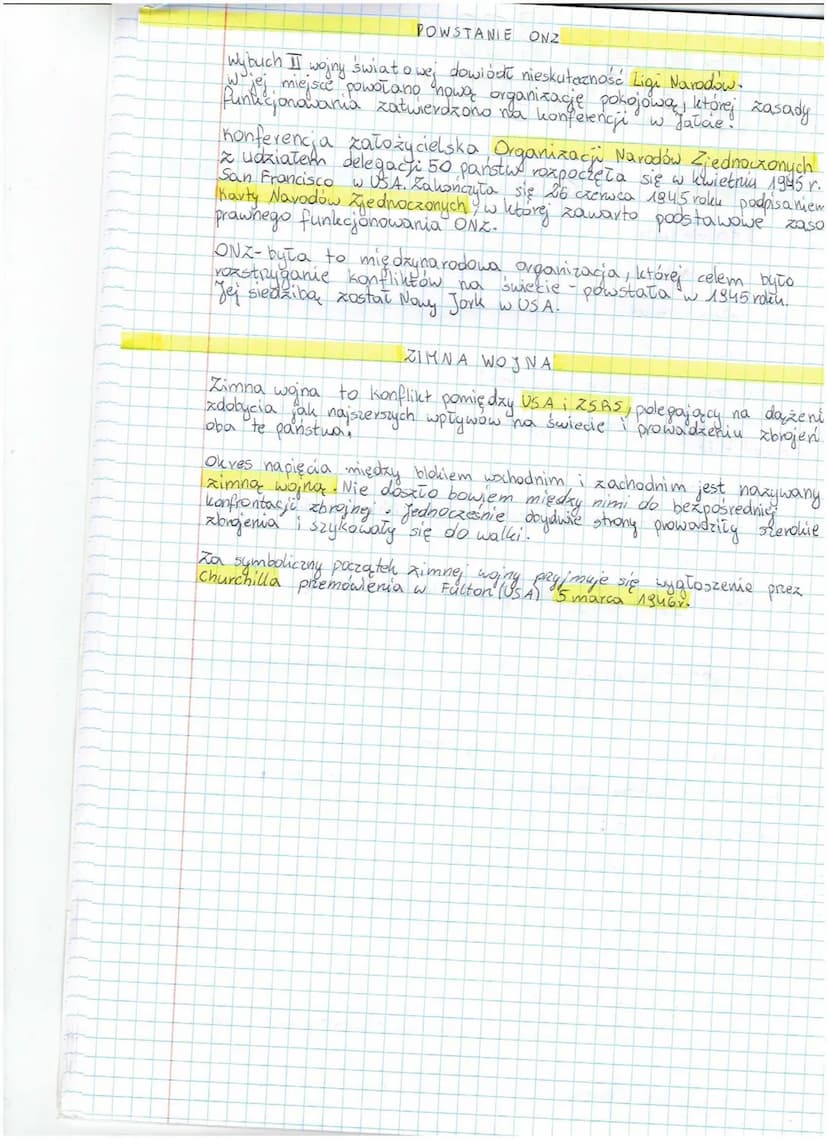 POWSTANIE ONZ
Wybuch II wojny światowej dowiódł nieskuteczność Ligi Narodów.
W jej miejsce powołano nową organizację pokojową, której zasady
funkcjonowania zatwierdzono na konferencji w Jałcie.
Konferencja założycielska Organizacji Narodów Zjednoczonych
z udziałem delegacji 50 państw rozpoczęła się w kwietniu 1945 r.
San Francisco w USA. Zakończyła się 26 czerwca 1945 roku podpisaniem
Karty Narodów Zjednoczonych, w której zawarto podstawowe zaso
prawnego funkcjonowania ONZ.
ONZ- była to międzynarodowa organizacja, której celem było
rozstrzyganie konfliktów na świecie - powstała w 1945 roku.
Jej siedzibą został Nowy Jork w USA.
ZIMNA WOJNA
Zimna wojna to konflikt pomiędzy USA i ZSRS, polegający na dążeni
zdobycia jak najszerszych wpływów na świecie i prowadzeniu zbrojeń
oba te państwa.
Okres napięcia między blokiem wschodnim i zachodnim jest nazywany
zimną wojną. Nie doszło bowiem między nimi do bezpośredniej
konfrontacji zbrojnej. Jednocześnie obydwie strony prowadziły szerokie
zbrojenia i szykowały się do walki.
Za symboliczny początek zimnej wojny przyjmuje się wygłoszenie przez
Churchilla przemówienia w Fulton (USA) 5 marca 1946r.